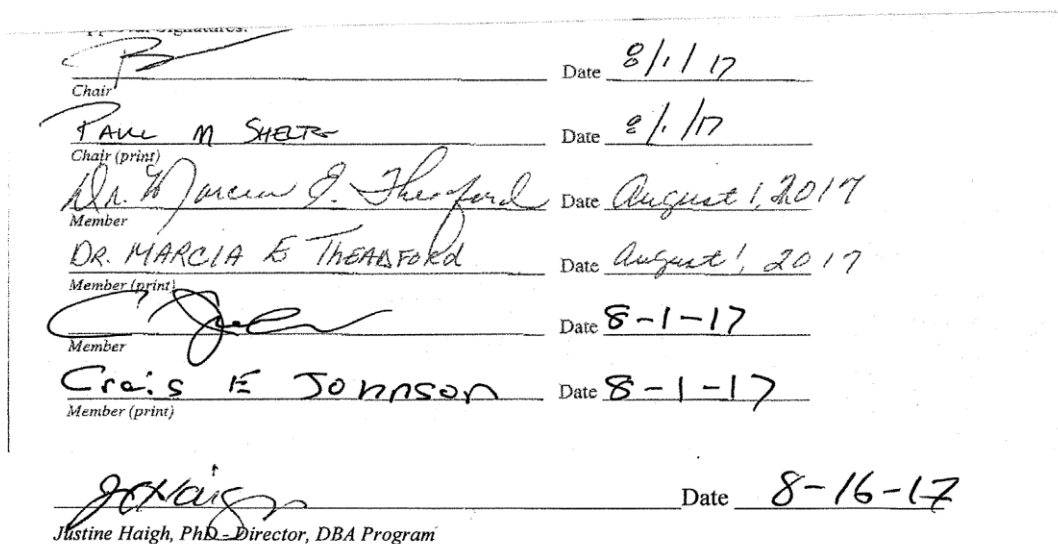 Approval Signatures:
Date 8/1/17
Chair
PAUL M SHELTON Date 8/1/17
Chair (print)
Dr. Marcia E. Theadford Date August 1, 2017
Member
DR. MARCIA E THEADFORD Date August 1, 2017
Member (print)
Date 8-1-17
Member
Craig E Johnson Date 8-1-17
Member (print)
JHaigh Date 8-16-17
Justine Haigh, PhD - Director, DBA Program